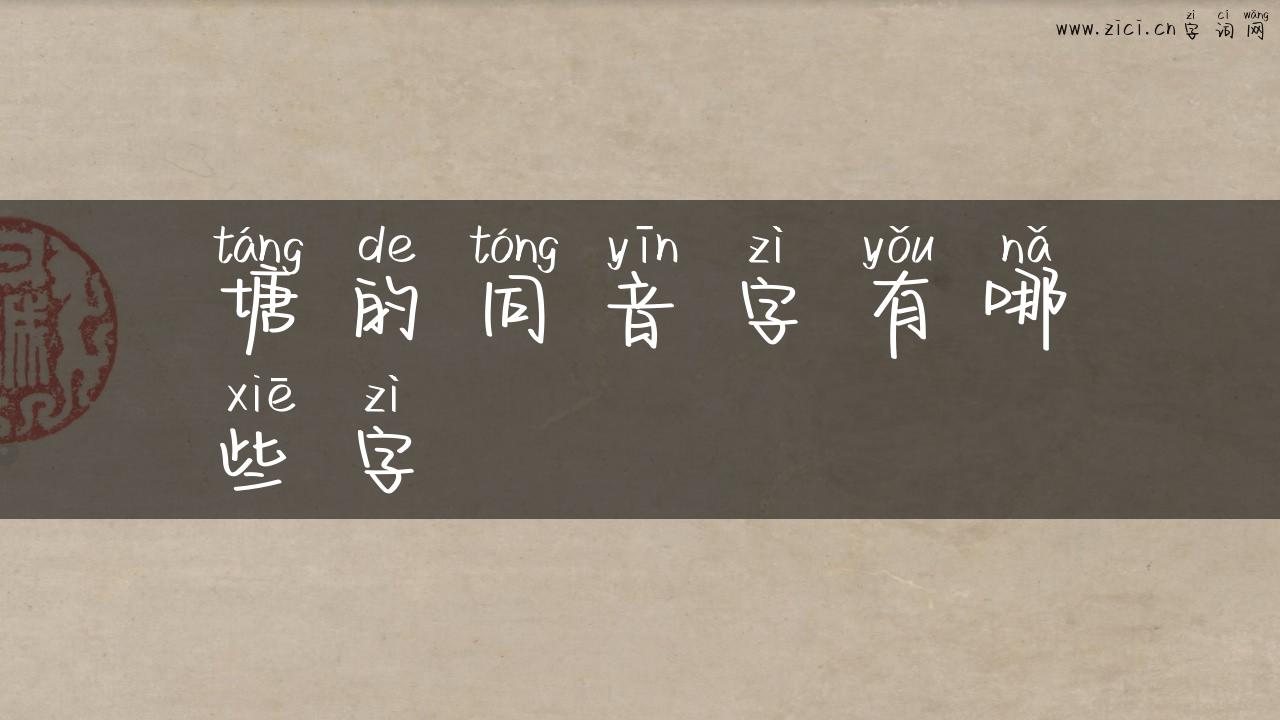 www.zici.cn字词网
zì cí wǎng
táng de tóng yīn zì yǒu nǎ
塘的同音字有哪
xiē zì
些字